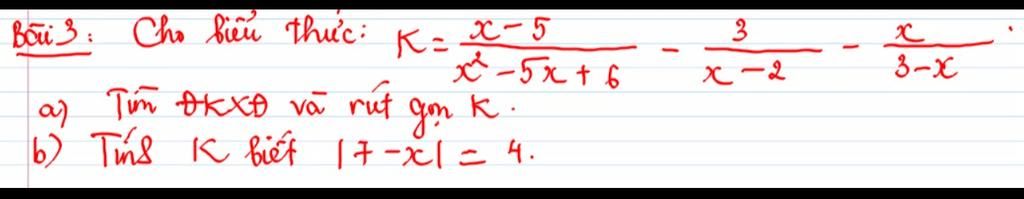 Bài 3: Cho biểu thức: K = \frac{x-5}{x^2-5x+6} - \frac{3}{x-2} - \frac{x}{3-x}.
a) Tìm ĐKXĐ và rút gọn K.
b) Tính K biết |7-x| = 4.